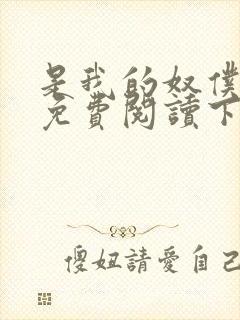 是我的奴僕
免費閱讀下
傻妞請愛自己